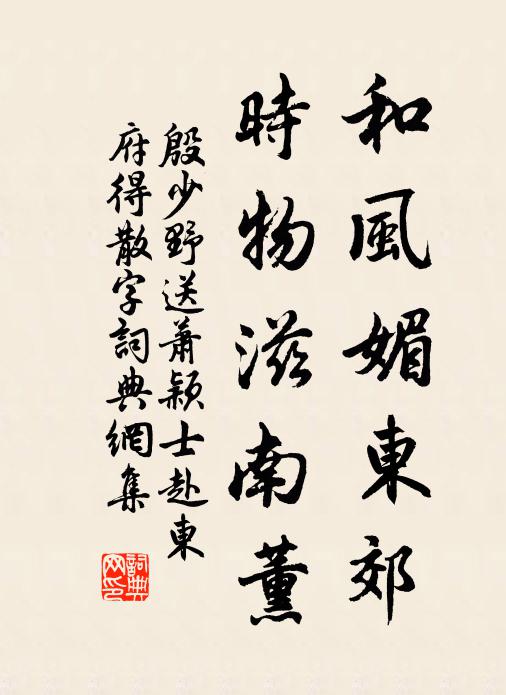 和風媚東郊
時物滋南薰
殷少野送蕭穎士赴東
府得散字詞典網集
詞典
网印